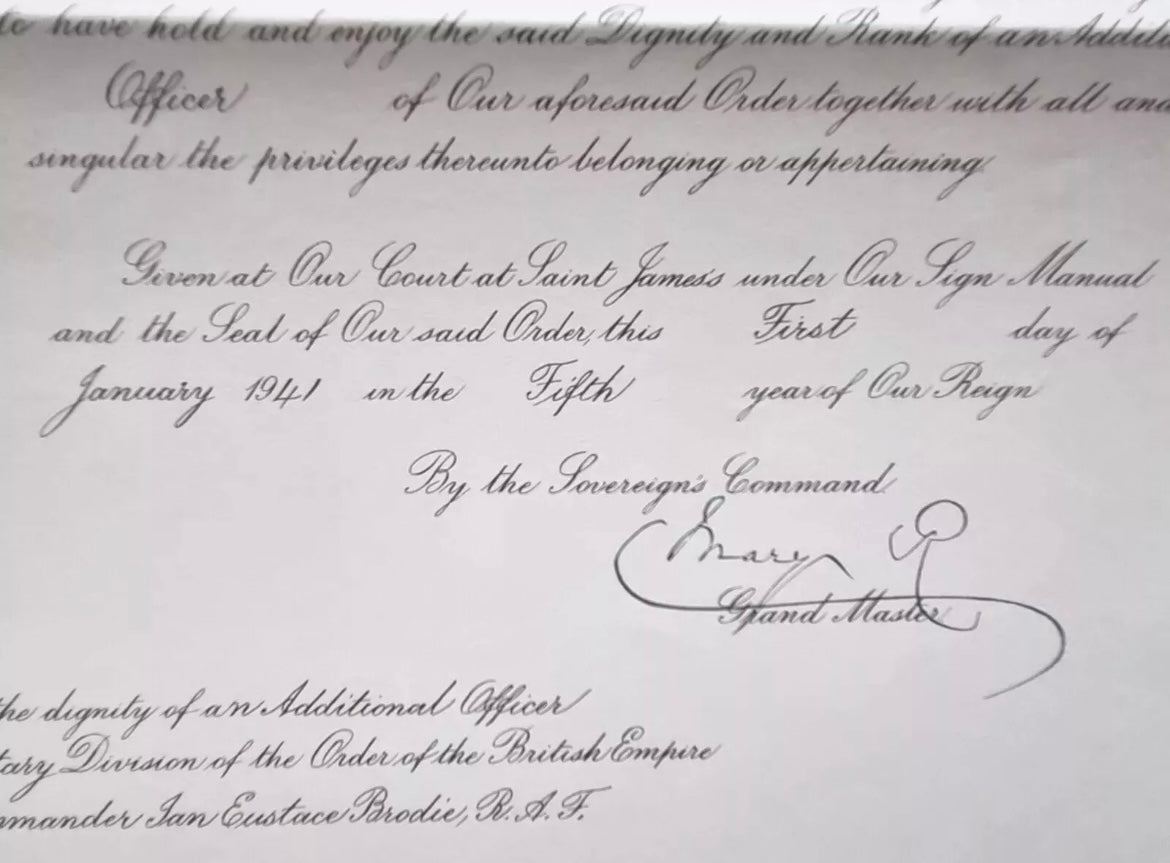 to have hold and enjoy the said Dignity and Rank of an Additi
Officer of Our aforesaid Order together with all and
singular the privileges thereunto belonging or appertaining
Given at Our Court at Saint James's under Our Sign Manual
and the Seal of Our said Order, this First day of
January 1941 in the Fifth year of Our Reign
By the Sovereign's Command
Mary R
Grand Master
the dignity of an Additional Officer
tary Division of the Order of the British Empire
mmander Ian Eustace Brodie, R.A.F.